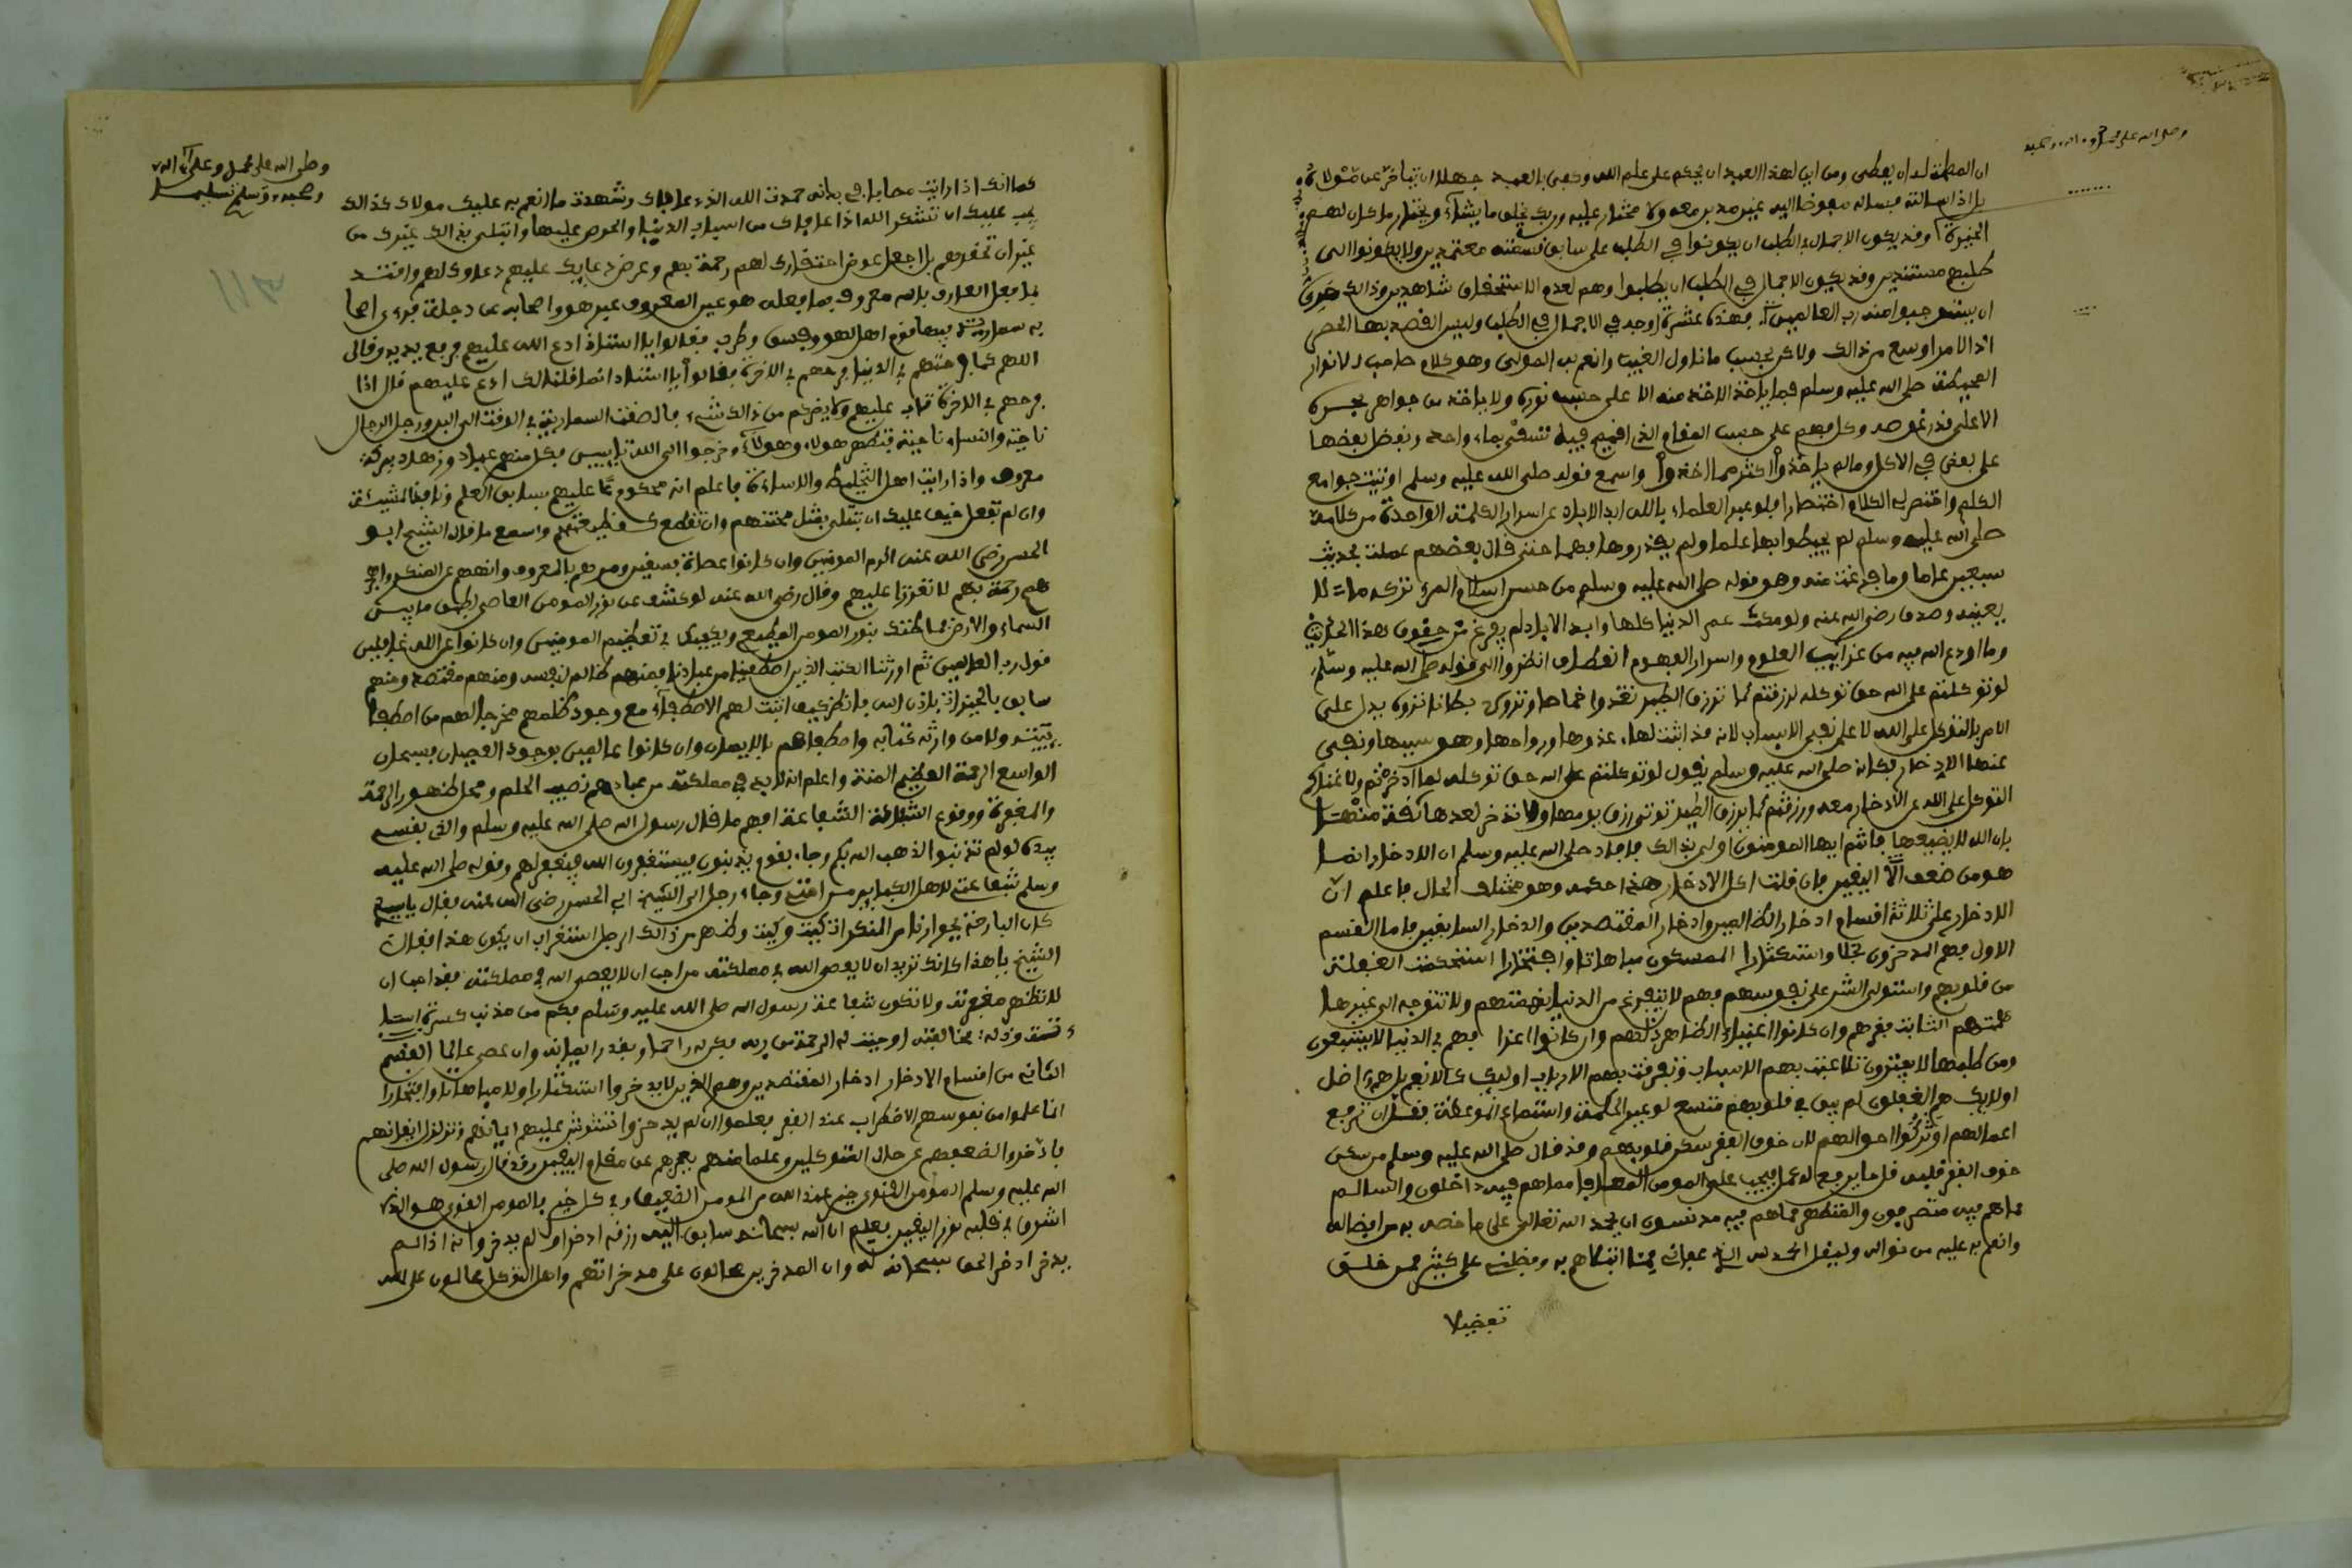 وصلى الله على محمد وءاله وصحبه
ان المصلحة له ان يعطى ومن اين لهذا العبد ان يحكم على علم الله وكفى بالعبد جهلا ان يتخير على مولاه
بل اذا سالته فسله مفوضا اليه غير مدبر معه ولا مختار عليه وربك يخلق ما يشاء ويختار ما كان لهم
الخيرة وقد يكون الاجمال في الطلب ان يكونوا في الطلب على سابق قسمته معتمدين ولا يكونوا الى
طلبهم مستندين وقد يكون الاجمال في الطلب ان يطلبوا وهم لعدم الاستحقاق شاهدين وذالك حري
ان يستوجبوا منه رب العالمين فهذه عشرة اوجه في الاجمال في الطلب وليس القصد بها الحصر
اذ الامر اوسع من ذالك ولاكن بحسب ما ناول الغيب وانعم به المولى وهو كلام صاحب الانوار
المحيطة صلى الله عليه وسلم فما ياخذ الاخذ منه الا على حسب نوره ولا ياخذ من جواهر بحره
الا على قدر غوصه وكل يفهم على حسب المقام الذي اقيم فيه تسقى بماء واحد ونفضل بعضها
على بعض في الاكل وما لم ياخذوا اكثر مما اخذوا واسمع قوله صلى الله عليه وسلم اوتيت جوامع
الكلم واختصر لي الكلام اختصارا فلو عبر العلماء بالله ابد الاباد عن اسرار الكلمة الواحدة من كلامه
صلى الله عليه وسلم لم يحيطوا بها علما ولم يقدروها فهما حتى قال بعضهم عملت بحديث
سبعين عاما وما فرغت منه وهو قوله صلى الله عليه وسلم من حسن اسلام المرء تركه ما لا
يعنيه وصدق رضي الله عنه ولو مكث عمر الدنيا كلها وابد الاباد لم يفرغ من حقوق هذا الحديث
وما اودع الله فيه من غرايب العلوم واسرار الفهوم انعطاف انظروا الى قوله صلى الله عليه وسلم
لو توكلتم على الله حق توكله لرزقتم كما ترزق الطير تغدوا خماصا وتروح بطانا تروه يدل على
الامر بالتوكل على الله لا على نفي الاسباب لانه قد اثبت لها غدوها ورواحها وهو سببها ونفى
عنها الادخار فكانه صلى الله عليه وسلم يقول لو توكلتم على الله حق توكله لما ادخرتم ولاغناكم
التوكل على الله عن الادخار معه ورزقتم كما يرزق الطير توتى رزق يومها ولا تدخر لغدها ثقة منها
بان الله لا يضيعها فانتم ايها المومنون اولى بذالك فافاد صلى الله عليه وسلم ان الادخار انما
هو من ضعف اليقين فان قلت اكل الادخار هذا حكمه وهو مختلف الحال فاعلم ان
الادخار على ثلاثة اقسام ادخار الظالمين وادخار المقتصدين وادخار السابقين فاما القسم
الاول فهم المدخرون بخلا واستكثارا الممسكون مباهاتا وافتخارا استحكمت الغفلة
من قلوبهم واستولى الشره على نفوسهم فهم لا تفرغ من الدنيا نهمتهم ولا تتوجه الى غيرها
همتهم الثابت فقرهم وان كانوا اغنياء الظاهر ذلهم وان كانوا اعزا فهم في الدنيا لا يشبعون
ومن طلبها لا يفترون تلاعبت بهم الاسباب وتفرقت بهم الارباب اوليك كالانعم بل هم اضل
اولايك هم الغفلون لم يبق في قلوبهم متسع لوعي الحكمة واستماع الموعظة فقل ان ترفع
اعمالهم او تزكوا احوالهم لان خوف الفقر سكن قلوبهم وقد قال صلى الله عليه وسلم من سكن
خوف الفقر قلبه قل ما يرفع له عمل فيجب على المومن المعافا مما هم فيه داخلون والسالم
مما هم فيه متصرفون والمتطهر مما هم فيه مدنسون ان يحمد الله تعالى على ما خصه به من افضاله
وانعم به عليه من نواله وليقل الحمد لله الذي عافاني مما ابتلاهم به وفضلني على كثير ممن خلق
تفضيلا
وصلى الله على محمد وعلى ءاله
وصحبه وسلم تسليما
112
كما انك اذا رايت مصابا في بدنه حمدت الله الذي عافاك وشهدت ما انعم به عليك مولاك كذالك
يجب عليك ان تشكر الله اذا عافاك من اسباب الدنيا والحرص عليها وابتلى بذالك غيرك من
غير ان تحقرهم بل اجعل عوض احتقارك لهم رحمة بهم وعوض دعايك عليهم دعاوك لهم واقتد
بما فعل العارف بالله معروف فما فعله هو عين المعروف عبر هو واصحابه على دجلة فرءى اصحابه
به سمارية فيها قوم اهل لهو وفسق وطرب فقالوا يا استاذ ادع الله عليهم فرفع يديه وقال
اللهم كما فرحتهم في الدنيا فرحهم في الاخرة فقالوا يا استاذ انما قلنا لك ادع عليهم قال اذا
فرحهم في الاخرة تاب عليهم ولا يضركم من ذالك شيء فالصقت السمارية في الوقت الى البر ونزل الرجال
ناحية والنساء ناحية فتطهر هولاء وهولاء وخرجوا الى الله تايبين فكان منهم عباد وزهاد ببركة
معروف واذا رايت اهل التخليط والاساءة فاعلم انه محكوم بما عليهم سابق العلم ونافذ المشيئة
وان لم تفعل خيف عليك ان تبتلى بمثل محنتهم وان تقطع كقطيعتهم واسمع ما قال الشيخ ابو
الحسن رضي الله عنه اكرم المومنين وان كانوا عصاة فسقين ومرهم بالمعروف وانههم عن المنكر واهجر
هم رحمة بهم لا تعززا عليهم وقال رضي الله عنه لو كشف عن نور المومن العاصي لطبق ما بين
السماء والارض فما ظنك بنور المومن المطيع ويكفيك في تعظيم المومنين وان كانوا عن الله غافلين
قول رب العالمين ثم اورثنا الكتب الذين اصطفينا من عبادنا فمنهم ظالم لنفسه ومنهم مقتصد ومنهم
سابق بالخيرات باذن الله فانظر كيف اثبت لهم الاصطفاء مع وجود ظلمهم ولم يجعل ظلمهم مخرجا لهم من اصطفا
يتيه ولا من وارثة كتابه واصطفاهم بالايمان وان كانوا ظالمين بوجود العصيان فسبحان
الواسع الرحمة العظيم المنة واعلم انه لابد في مملكته من عباد هم نصيب الحلم ومحل ظهور الرحمة
والمغفرة ووقوع الشفاعة افهم ما قال رسول الله صلى الله عليه وسلم والذي نفسي
بيده لو لم تذنبوا لذهب الله بكم وجاء بقوم يذنبون فيستغفرون الله فيغفر لهم وقوله صلى الله عليه
وسلم شفاعتي لاهل الكباير من امتي وجاء رجل الى الشيخ ابي الحسن رضي الله عنه فقال يا سيدي
كان البارحة بجوارنا من المنكرات كيت وكيت وظهر من ذالك الرجل استغراب ان يكون هذا فقال
الشيخ يا هذا كانك تريد ان لا يعصى الله في مملكته من احب ان لا يعصى الله في مملكته فقد احب ان
لا تظهر مغفرته ولا تكون شفاعة رسول الله صلى الله عليه وسلم فكم من مذنب كثرة اسا
ءته وذله مخالفته اوجبت له الرحمة من ربه فكن له راحما وبقدر ايمانه وان عصى عالما القسم
الثاني من اقسام الادخار ادخار المقتصدين وهم الذين لا يدخروا استكثارا ولا مباهاتا وافتخارا
انما علموا من نفوسهم الاضطراب عند الفقر فعلموا ان لم يدخروا تشوش عليهم ايمانهم وتزلزل ايقانهم
فادخروا لضعفهم عن حال المتوكلين وعلما منهم بعجزهم عن مقام اليقين وقد قال رسول الله صلى
الله عليه وسلم المومن القوي خير عند الله من المومن الضعيف وفي كل خير فالمومن القوي هو الذي
اشرق في قلبه نور اليقين فعلم ان الله سبحانه سايق اليه رزقه ادخر او لم يدخر وانه اذا لم
يدخر ادخر الحق سبحانه له وان المدخرين محالون على مدخراتهم واهل التوكل محالون على الله